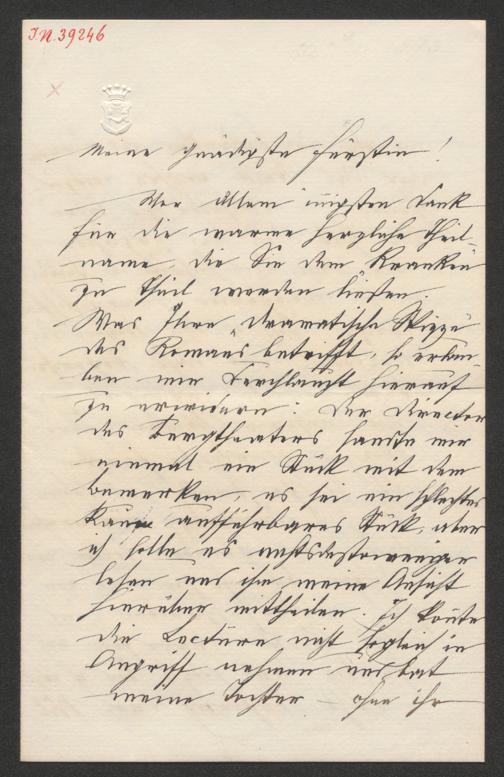 I.N. 39246
Meine gnädigste Fürstin!
Vor Allem innigsten Dank
für die warme herzliche Theil-
name, die Sie dem Kranken
zu Theil werden ließen.
Was Ihre „dramatische Skizze
des Romans betrifft, so erlau
ben mir Durchlaucht hierauf
zu erwidern: Der Director
des Burgtheaters sandte mir
einmal ein Stück mit dem
bemerken, es sei ein schlechtes
kaum aufführbares Stück, aber
ich solle es nichtsdestoweniger
lesen und ihm meine Ansicht
hierüber mittheilen. Ich konte
die Lecture nicht sogleich in
Angriff nehmen und bat
meine Tochter – ohne ihr